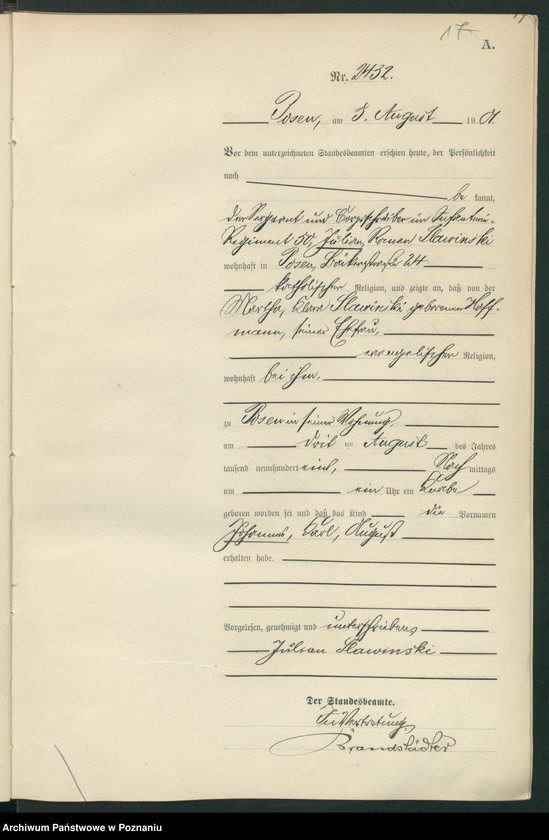 17.
A.
Nr. 2432.
Posen, am 5. August 1901.
Vor dem unterzeichneten Standesbeamten erschien heute, der Persönlichkeit
nach
be kannt,
der Sergeant und Corpsschreiber im Infanterie-
Regiment 50, Julian, Roman Slawinski
wohnhaft in Posen, Bäckerstraße 24
katholischer Religion, und zeigte an, daß von der
Martha, Clara Slawinski geborenen Hoff-
mann, seiner Ehefrau,
evangelischer Religion,
wohnhaft bei ihm,
zu Posen in seiner Wohnung,
am drei ten August des Jahres
tausend neunhundert eins, Nach mittags
um ein Uhr ein Knabe
geboren worden sei und daß das Kind die Vornamen
Johannes, Carl, August
erhalten habe.
Vorgelesen, genehmigt und unterschrieben
Julian Slawinski
Der Standesbeamte.
In Vertretung
Brandstädter
Archiwum Państwowe w Poznaniu